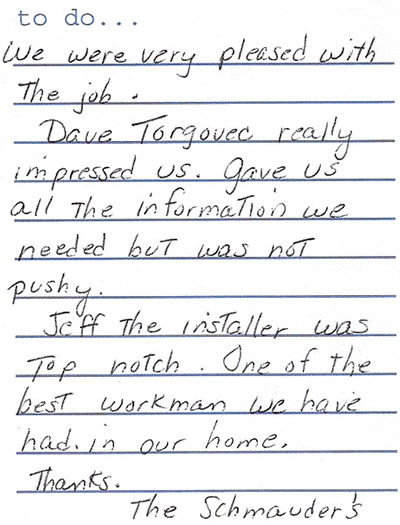 to do...
We were very pleased with
The job.
Dave Torgovec really
impressed us. Gave us
all The information we
needed but was not
pushy.
Jeff The installer was
Top notch. One of the
best workman we have
had. in our home.
Thanks.
The Schmauder's